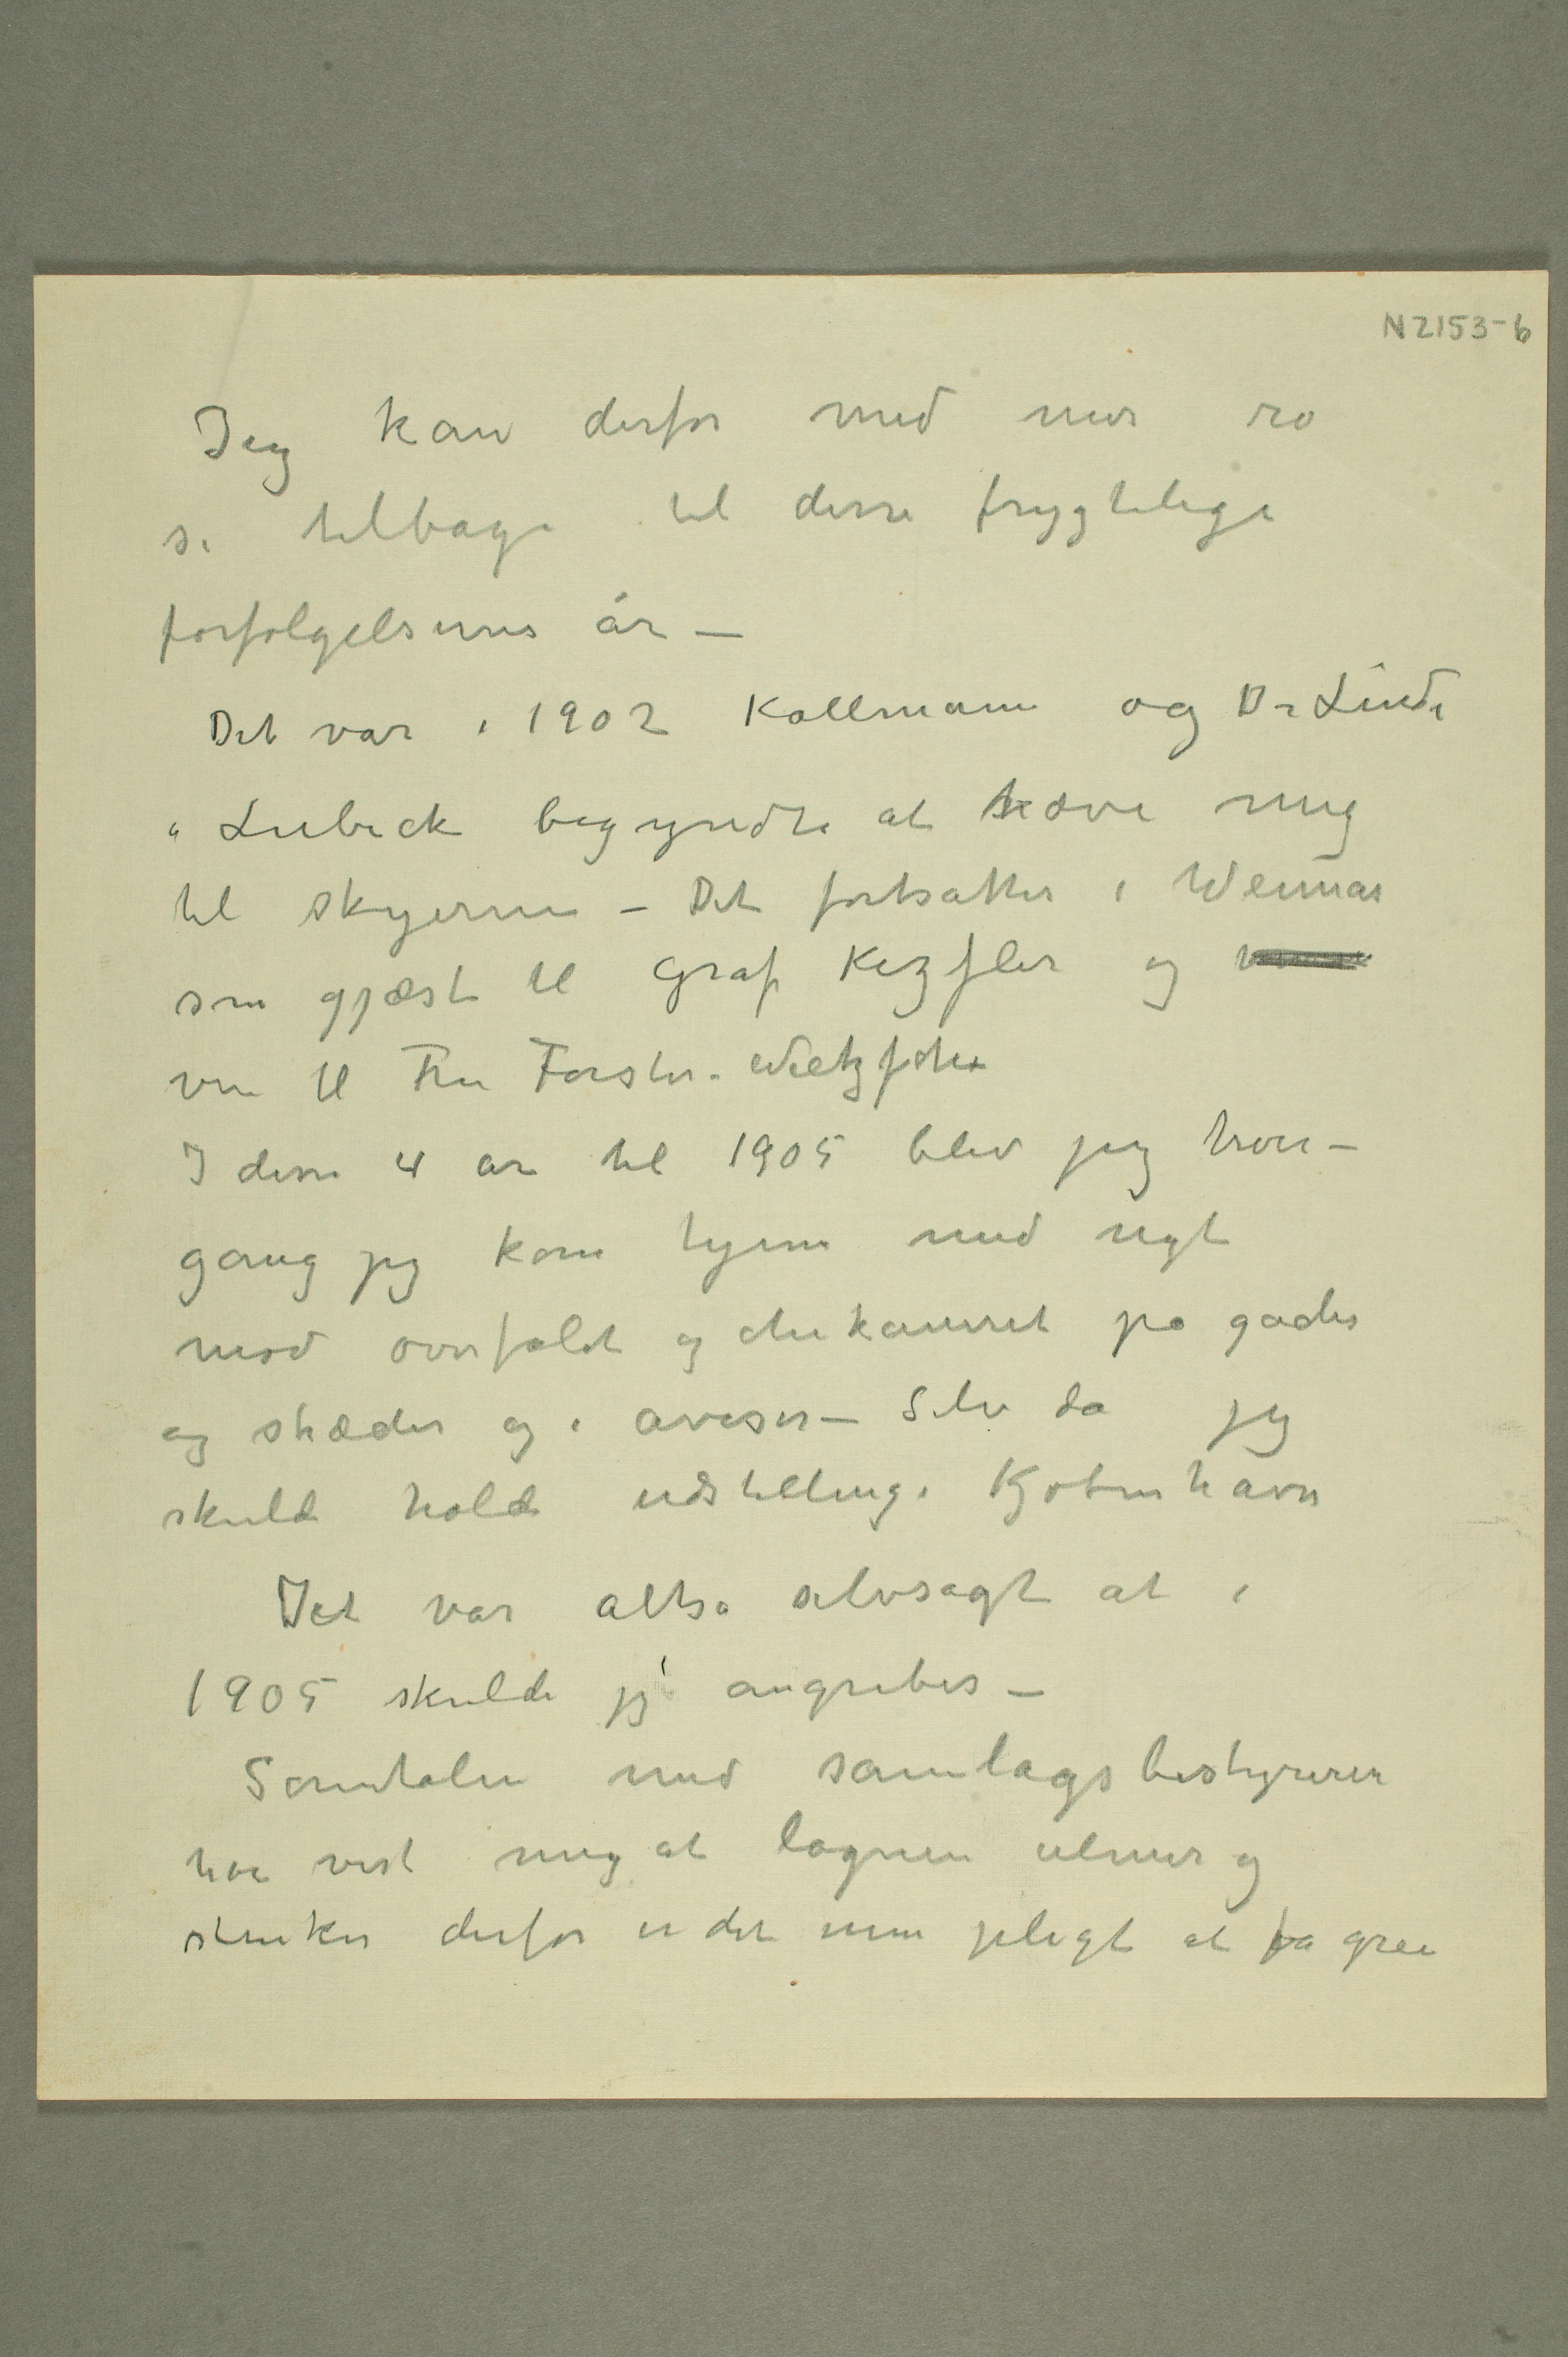 N 2153-6
Jeg kan derfor med mer ro
se tilbage til disse frygtelige
forfølgelsernes år –
Det var i 1902 Kollmann og Dr Linde
i Lubeck begyndte at hæve mig
til skyerne – Det fortsattes i Weimar
som gjæst til Graf Kezsler og
ven til Fru Førster. Nietzsche
I disse 4 år til 1905 blev jeg hver–
gang jeg kom hjem med nyt
mod overfaldt og chikaneret på gader
og stræder og i aviser – Selv da jeg
skulde holde udstilling i Kjøbenhavn
Det var altså selvsagt at i
1905 skulde jeg angribes –
Samtalen med samlagsbestyreren
har vist mig at løgnen ulmer og
stinker derfor er det min pligt at få gree